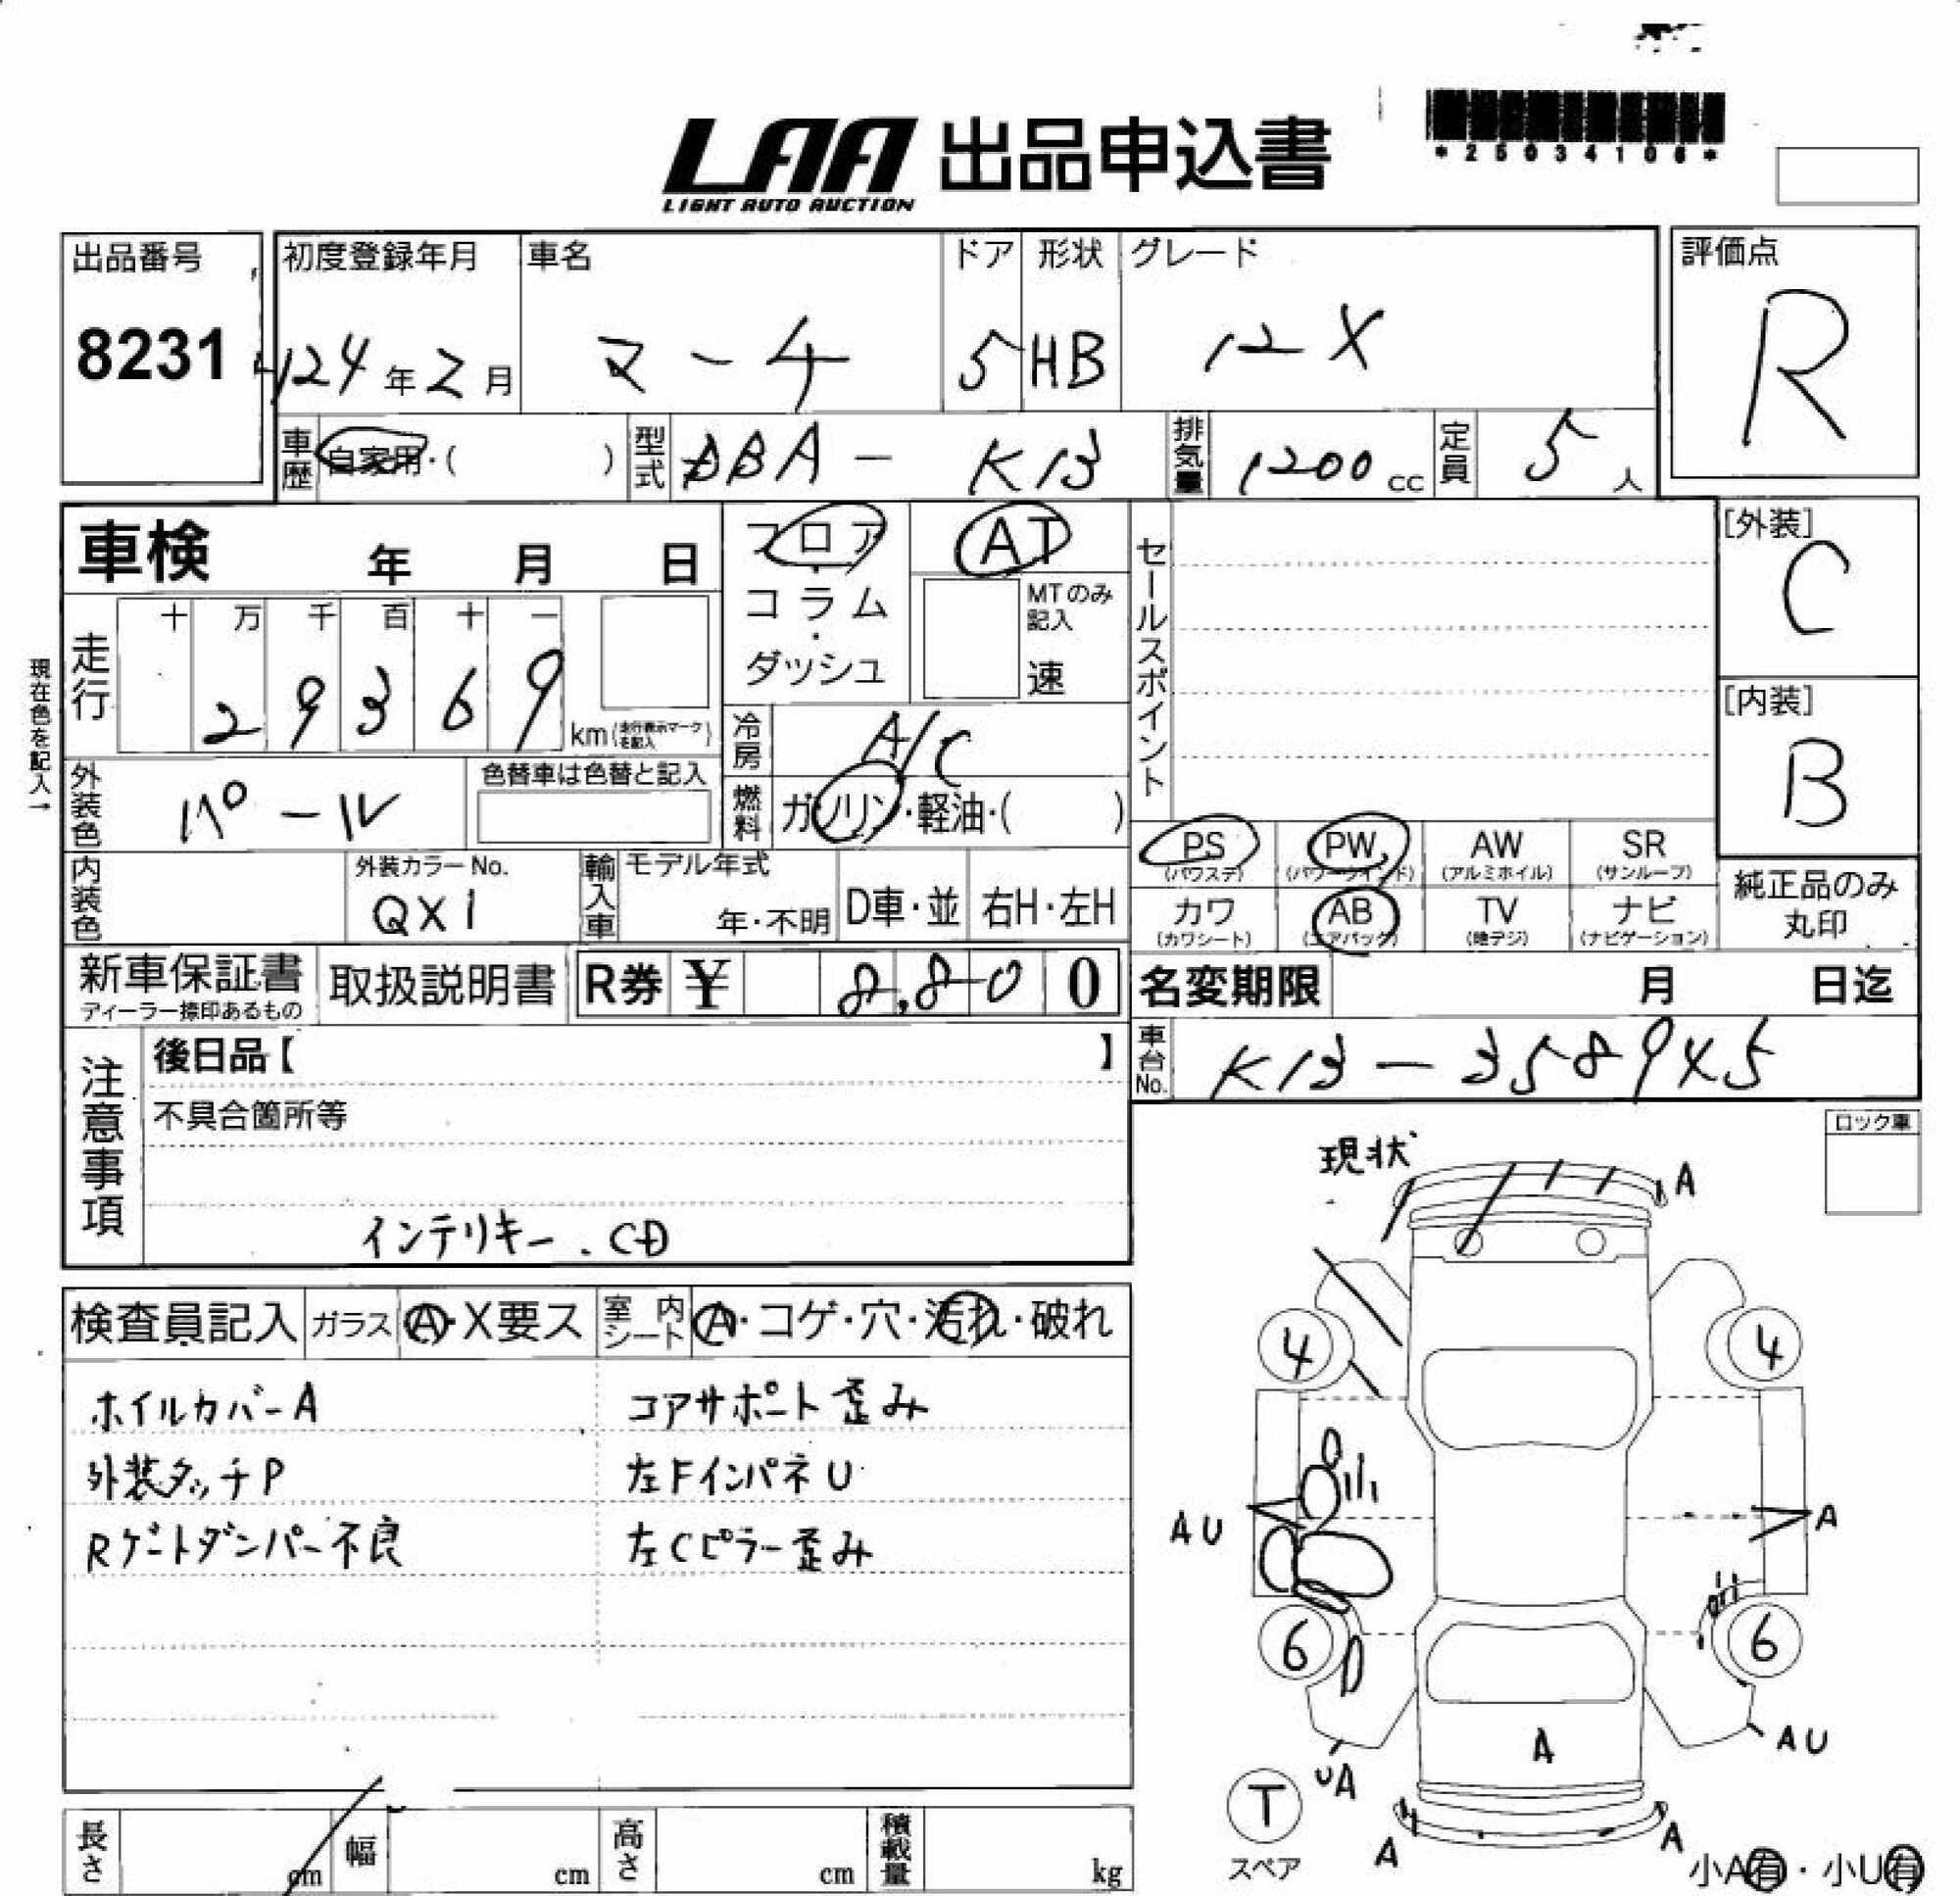 LAA 出品申込書
LIGHT AUTO AUCTION
*25034106*
出品番号
8231
初度登録年月
24年2月
車名
マーチ
ドア
5
形状
HB
グレード
12X
評価点
R
車歴 自家用・( )
型式 DBA - K13
排気量 1200cc
定員 5人
車検 年 月 日
現在色を記入→
走行
十 万 千 百 十 一
2 9 3 6 9
km(走行表示マークを記入)
フロア・コラム・ダッシュ
AT
MTのみ記入
速
冷房 A/C
燃料 ガソリン・軽油・( )
セールスポイント
[外装]
C
[内装]
B
外装色 パール
色替車は色替と記入
内装色
外装カラーNo.
QX1
輸入車 モデル年式
年・不明 D車・並 右H・左H
PS (パワステ)
PW (パワーウインド)
AW (アルミホイル)
SR (サンルーフ)
カワ (カワシート)
AB (エアバック)
TV (地デジ)
ナビ (ナビゲーション)
純正品のみ丸印
新車保証書
ディーラー捺印あるもの
取扱説明書
R券 ¥ 8,800
名変期限 月 日迄
車台No. K13-358945
注意事項
後日品【 】
不具合箇所等
インテリキー.CD
ロック車
現状
検査員記入 ガラス A・X要ス 室内シート A・コゲ・穴・汚れ・破れ
ホイルカバーA
外装タッチP
Rゲートダンパー不良
コアサポート歪み
左FインパネU
左Cピラー歪み
A
4 4
AU
A
6 6
A
AU
UA
T
スペア
A
A
小A有・小U有
長さ cm 幅 cm 高さ cm 積載量 kg